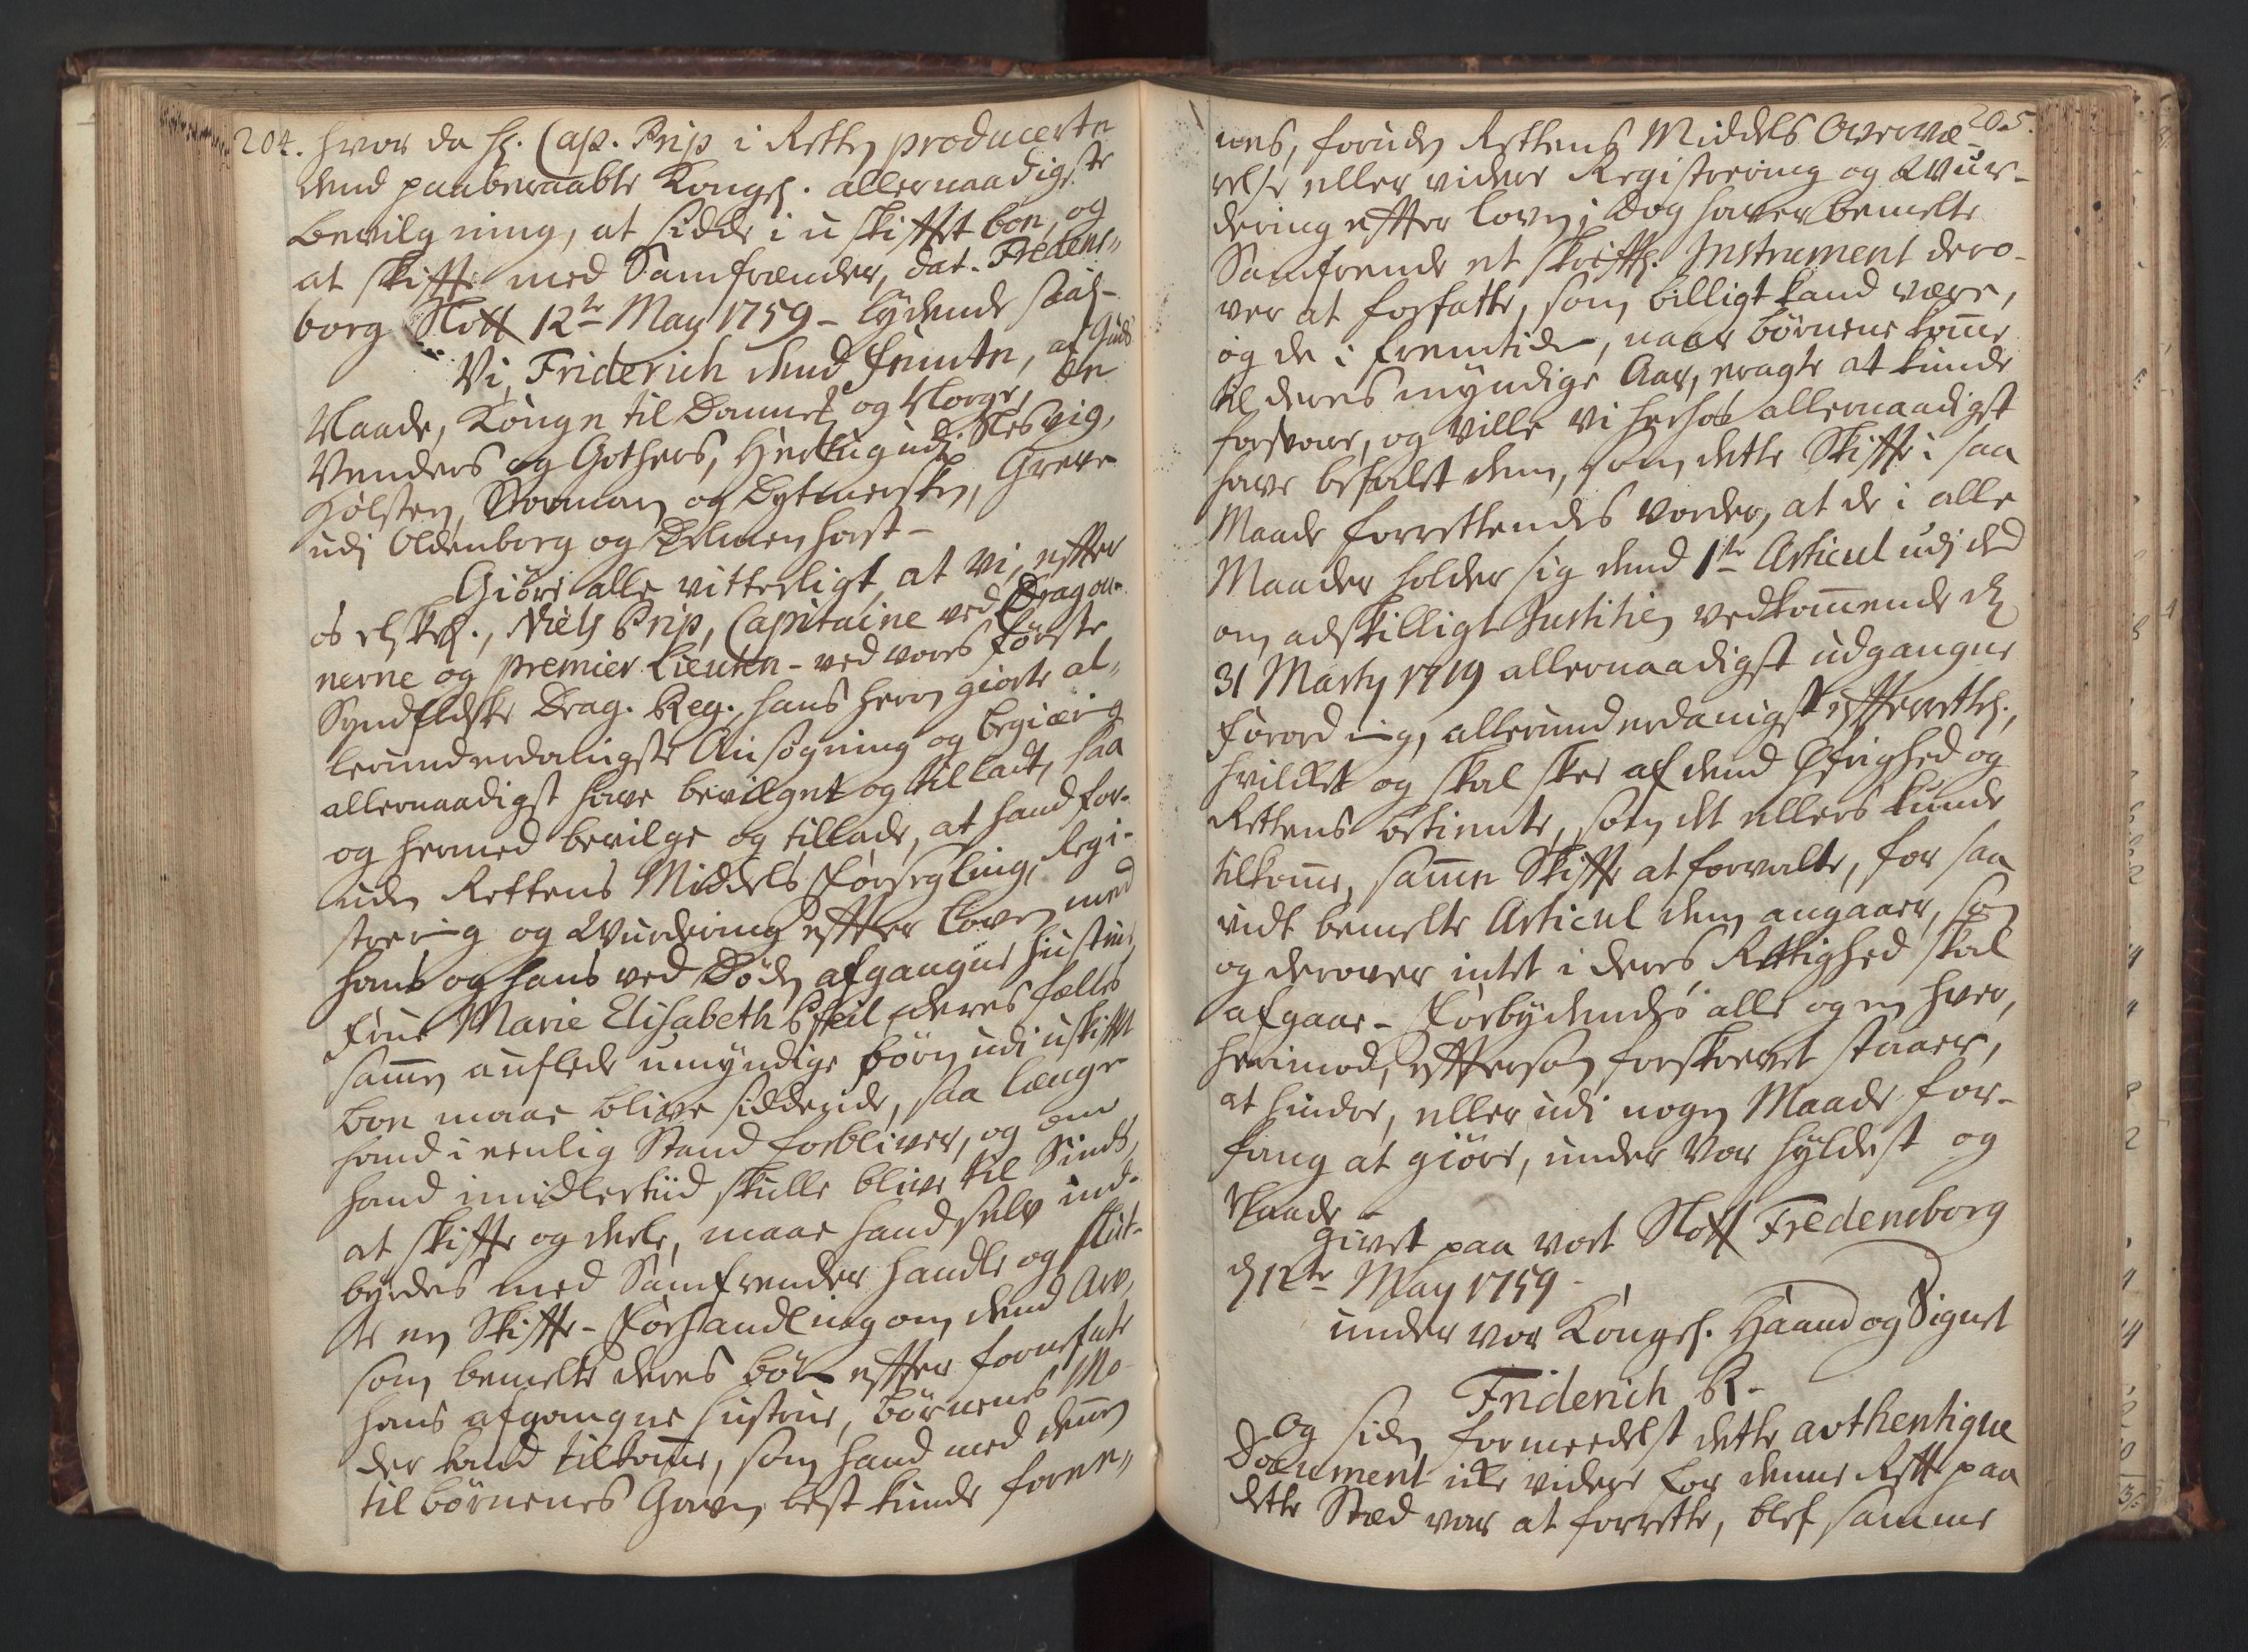 204. hvor da Hr. Cap. Prip i Retten producerte
dend paaberaabte Kongel. allernaadigste
Bevilgning, at sidde i u skifftet boe, og
at skiffte med Samfrænder, dat. Fredens„
borg Slott 12te May 1759 – lydende saal–
Vi, Friderich dend femte, af Guds
Naade, Konge til Danmk og Norge, De
Venders og Gothers, Hertug udj Slesvig,
Holsten, Stormarn og Dytmersken, Greve
udj Oldenborg og Delmenhorst –
Giöre alle vitterligt, at Vi, effter
os elskel., Niels Prip, Capitaine ved Dragou-
nerne og premier Lieutn – ved vores Første
Syndfieldske Drag. Reg., hans herom giorte al„
lerunderdanigste Ansøgning og begiæring
allernaadigst have bevilget og tilladt, saa
og hermed bevilge og tillade, at hand for-
uden Rettens Middels Forsegling, Regi-
strering og Wurdering effter Loven med
hans og hans ved Døden afgangne Hustrue,
Frue Marie Elisabeth Pfeil deres fælles
sam̄en auflede umyndige børn udi uskifft
boe maae blive siddende, saa længe
hand i eenlig Stand forbliver, og om
hand imidlertiid skulle blive til Sinds,
at skiffte og deele, maae hand selv ind-
byrdes med Samfrender handle og slut-
te en Skiffte-Forhandling om dend Arv,
som bemelte deres børn effter fornefnte
hans afgangne Hustrue, børnenes Mo-
der kand tilkom̄e, som hand med dem
til børnenes Gavn best kunde foree„
205.
nes, foruden Rettens Middels Overvæ-
relse eller videre Registrering og Wur-
dering effter loven; Dog haver bemelte
Samfrende et skrifftl. Instrument dero-
ver at forfatte, som billigt kand være,
og de i fremtiden, naar børnene kom̄e
til deres myndige Aar, eragte at kunde
forsvare, og ville Vi herhos allernaadigst
have befalet dem, som dette Skiffte i saa
Maade forrettendes vorder, at de i alle
Maader holder sig dend 1te Articul udj den
om adskilligt Justitien vedkom̄ende den
31 Marty 1719 allernaadigst udgangne
Forordning, allerunderdanigst effterrettel.,
hvilket og skal skee af dend Øfrighed og
Rettens betiente, som det ellers kunde
tilkom̄e, sam̄e Skiffte at forvalte, for saa
vidt bemelte Articul dem angaaer, som
og derover intet i deres Rettighed skal
afgaae – Forbydendes alle og en hver,
herimod, effterson forskrevet staaer,
at hindre, eller udi nogen Maade for-
fang at giöre, under Vor Hyldest og
Naade –
Givet paa vort Slott Fredensborg
d 12te May 1759 –
under vor Kongel. Haand og Signet
Friderich R –
Og siden formeedelst dette avthentique
Document icke videre for denne Rett paa
dette Sted var at forrette, blef samme